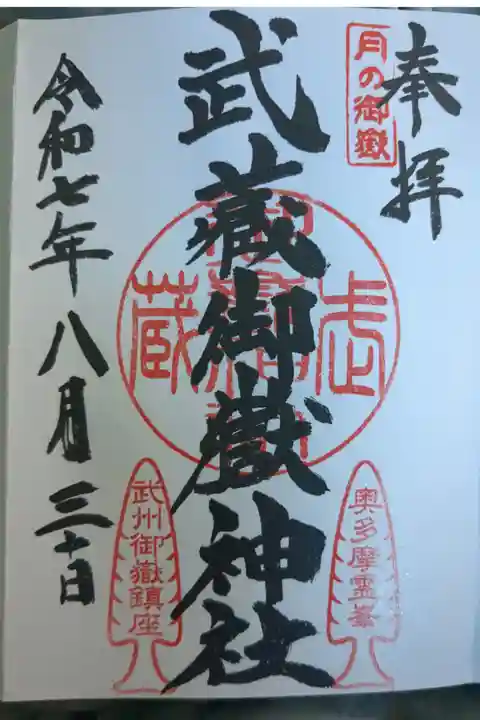 奉拝
月の御嶽
武蔵御嶽神社
武蔵
奥多摩霊峯
武州御嶽鎮座
令和七年八月三十日